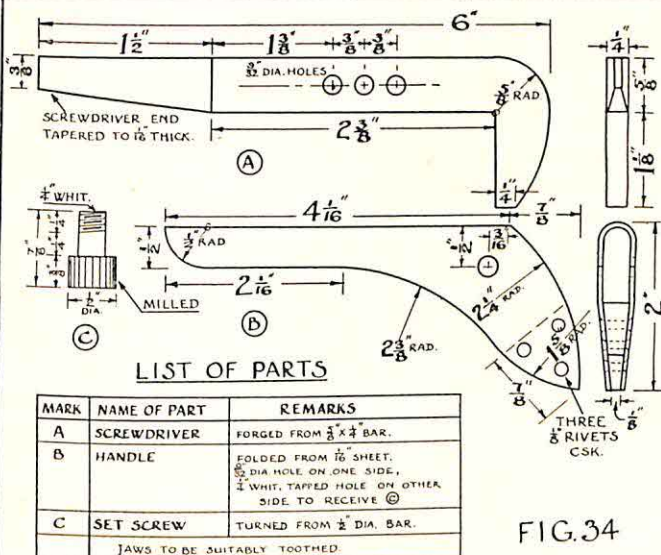 6"
1 1/2"
1 3/8"
3/8"
3/8"
1/4"
3/8"
9/32 DIA. HOLES
5/8" RAD.
5/8"
SCREWDRIVER END
TAPERED TO 1/16" THICK.
2 3/8"
1 1/8"
A
1/4"
1/4" WHIT.
4 1/16"
7/8"
7/8"
1/4"
1/4"
3/8"
1/2"
1/2" RAD
1/2"
3/16
2"
1/2"
DIA.
MILLED
2 1/16"
B
2 1/4" RAD.
1 5/8" RAD.
C
2 3/8" RAD.
7/8"
1/8"
THREE
1/8" RIVETS
CSK.
LIST OF PARTS
MARK NAME OF PART REMARKS
A SCREWDRIVER FORGED FROM 5/8" x 1/4" BAR.
B HANDLE FOLDED FROM 1/16" SHEET.
9/32 DIA. HOLE ON ONE SIDE,
1/4" WHIT. TAPPED HOLE ON OTHER
SIDE TO RECEIVE C
C SET SCREW TURNED FROM 1/2" DIA. BAR.
JAWS TO BE SUITABLY TOOTHED
FIG.34